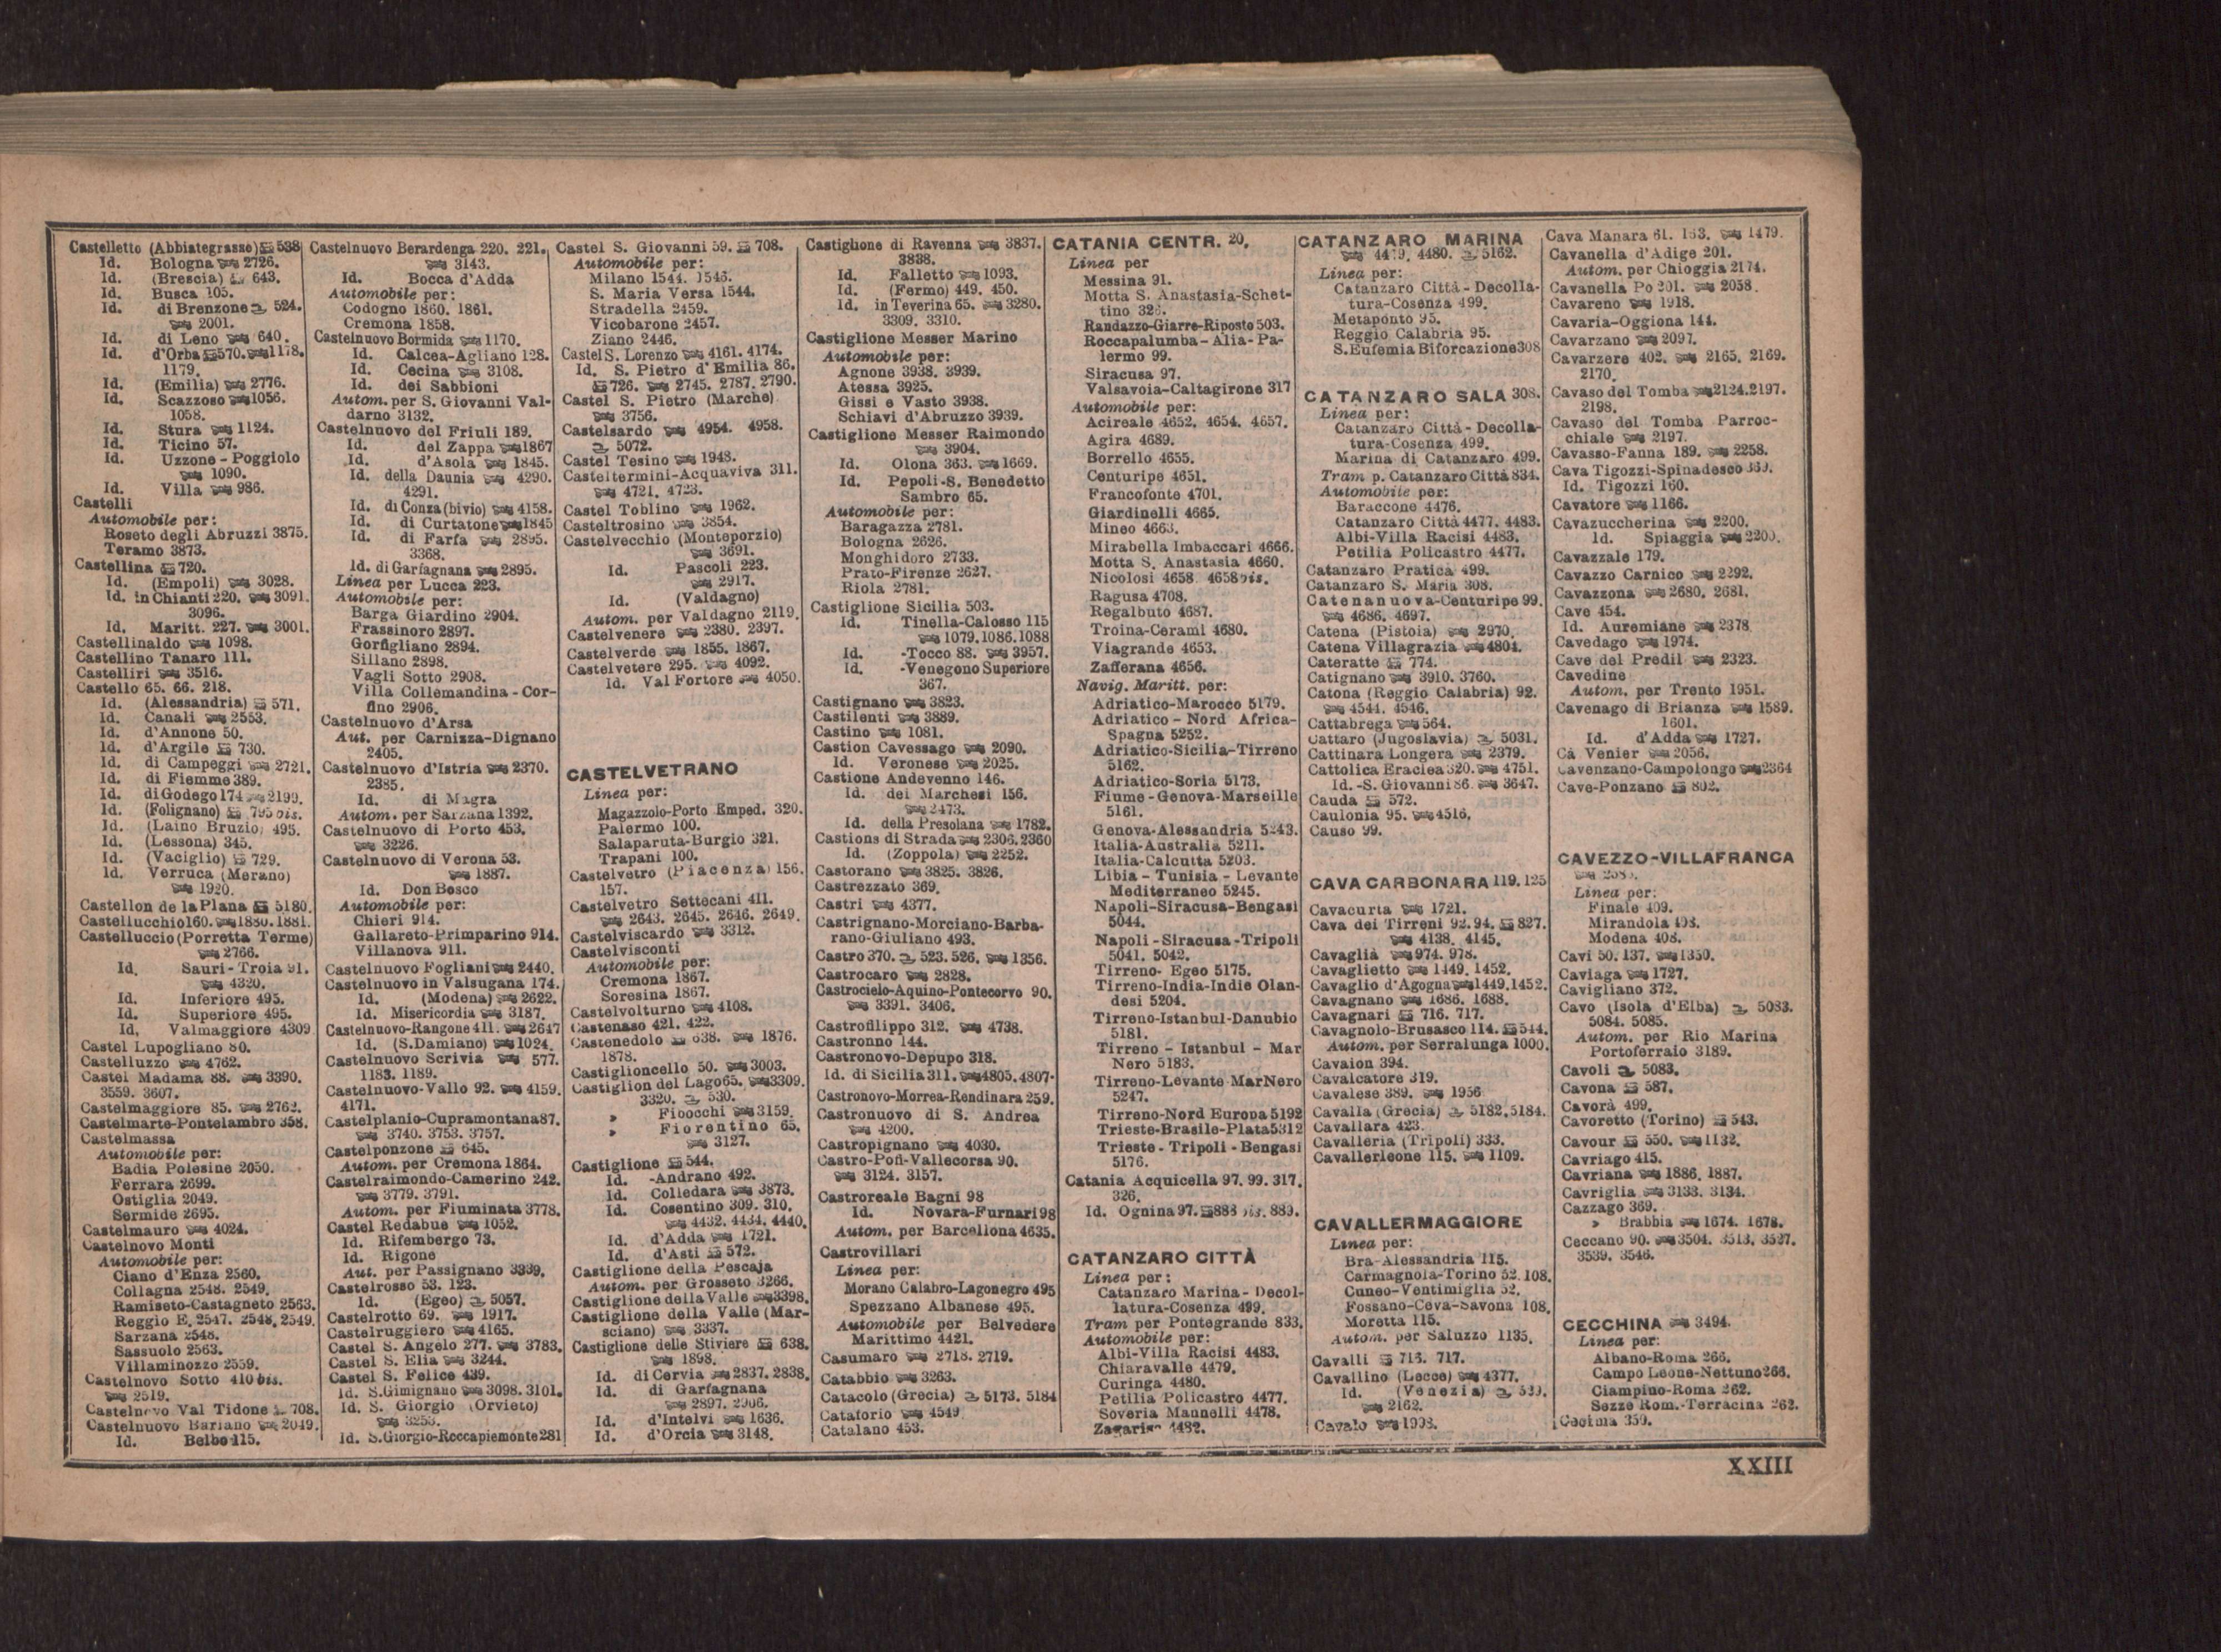 Castelletto (Abbiategrasso) 538
Id. Bologna 2726.
Id. (Brescia) 643.
Id. Busca 105.
Id. di Brenzone 524.
2001.
Id. di Leno 640.
Id. d'Orba 570. 1178.
1179.
Id. (Emilia) 2776.
Id. Scazzoso 1056.
1058.
Id. Stura 1124.
Id. Ticino 57.
Id. Uzzone - Poggiolo
1090.
Id. Villa 986.
Castelli
Automobile per:
Roseto degli Abruzzi 3875.
Teramo 3873.
Castellina 720.
Id. (Empoli) 3028.
Id. in Chianti 220. 3091.
3096.
Id. Maritt. 227. 3001.
Castellinaldo 1098.
Castellino Tanaro 111.
Castelliri 3516.
Castello 65. 66. 218.
Id. (Alessandria) 571.
Id. Canali 2553.
Id. d'Annone 50.
Id. d'Argile 730.
Id. di Campeggi 2721.
Id. di Fiemme 389.
Id. di Godego 174 2199.
Id. (Folignano) 795 bis.
Id. (Laino Bruzio) 495.
Id. (Lessona) 345.
Id. (Vaciglio) 729.
Id. Verruca (Merano)
1920.
Castellon de la Plana 5180.
Castellucchio 160. 1880. 1881.
Castelluccio (Porretta Terme)
2766.
Id. Sauri - Troia 91.
4320.
Id. Inferiore 495.
Id. Superiore 495.
Id. Valmaggiore 4309
Castel Lupogliano 80.
Castelluzzo 4762.
Castel Madama 88. 3390.
3559. 3607.
Castelmaggiore 85. 2762.
Castelmarte-Pontelambro 358.
Castelmassa
Automobile per:
Badia Polesine 2050.
Ferrara 2699.
Ostiglia 2049.
Sermide 2695.
Castelmauro 4024.
Castelnovo Monti
Automobile per:
Ciano d'Enza 2560.
Collagna 2548. 2549.
Ramiseto-Castagneto 2563.
Reggio E. 2547. 2548. 2549.
Sarzana 2548.
Sassuolo 2563.
Villaminozzo 2559.
Castelnovo Sotto 410 bis.
2519.
Castelnovo Val Tidone 708.
Castelnuovo Bariano 2049.
Id. Belbo 115.
Castelnuovo Berardenga 220. 221.
3143.
Id. Bocca d'Adda
Automobile per:
Codogno 1860. 1861.
Cremona 1858.
Castelnuovo Bormida 1170.
Id. Calcea-Agliano 128.
Id. Cecina 3108.
Id. dei Sabbioni
Autom. per S. Giovanni Val-
darno 3132.
Castelnuovo del Friuli 189.
Id. del Zappa 1867
Id. d'Asola 1845.
Id. della Daunia 4290.
4291.
Id. di Conza (bivio) 4158.
Id. di Curtatone 1845
Id. di Farfa 2895.
3368.
Id. di Garfagnana 2895.
Linea per Lucca 223.
Automobile per:
Barga Giardino 2904.
Frassinoro 2897.
Gorfigliano 2894.
Sillano 2898.
Vagli Sotto 2908.
Villa Collemandina - Cor-
fino 2906.
Castelnuovo d'Arsa
Aut. per Carnizza-Dignano
2405.
Castelnuovo d'Istria 2370.
2385.
Id. di Magra
Autom. per Sarzana 1392.
Castelnuovo di Porto 453.
3226.
Castelnuovo di Verona 53.
1887.
Id. Don Bosco
Automobile per:
Chieri 914.
Gallareto-Primparino 914.
Villanova 911.
Castelnuovo Fogliani 2440.
Castelnuovo in Valsugana 174.
Id. (Modena) 2622.
Id. Misericordia 3187.
Castelnuovo-Rangone 411. 2647
Id. (S. Damiano) 1024.
Castelnuovo Scrivia 577.
1183. 1189.
Castelnuovo-Vallo 92. 4159.
4171.
Castelplanio-Cupramontana 87.
3740. 3753. 3757.
Castelponzone 645.
Autom. per Cremona 1864.
Castelraimondo-Camerino 242.
3779. 3791.
Autom. per Fiuminata 3778.
Castel Redabue 1052.
Id. Rifembergo 73.
Id. Rigone
Aut. per Passignano 3339.
Castelrosso 53. 123.
Id. (Egeo) 5057.
Castelrotto 69. 1917.
Castelruggiero 4165.
Castel S. Angelo 277. 3783.
Castel S. Elia 3244.
Castel S. Felice 439.
Id. S. Gimignano 3098. 3101.
Id. S. Giorgio (Orvieto)
3253.
Id. S. Giorgio-Roccapiemonte 281
Castel S. Giovanni 59. 708.
Automobile per:
Milano 1544. 1546.
S. Maria Versa 1544.
Stradella 2459.
Vicobarone 2457.
Ziano 2446.
Castel S. Lorenzo 4161. 4174.
Id. S. Pietro d'Emilia 86.
726. 2745. 2787. 2790.
Castel S. Pietro (Marche)
3756.
Castelsardo 4954. 4958.
5072.
Castel Tesino 1948.
Casteltermini-Acquaviva 311.
4721. 4723.
Castel Toblino 1962.
Casteltrosino 3854.
Castelvecchio (Monteporzio)
3691.
Id. Pascoli 223.
2917.
Id. (Valdagno)
Autom. per Valdagno 2119.
Castelvenere 2380. 2397.
Castelverde 1855. 1867.
Castelvetere 295. 4092.
Id. Val Fortore 4050.
CASTELVETRANO
Linea per:
Magazzolo-Porto Emped. 320.
Palermo 100.
Salaparuta-Burgio 321.
Trapani 100.
Castelvetro (Piacenza) 156.
157.
Castelvetro Settecani 411.
2643. 2645. 2646. 2649.
Castelviscardo 3312.
Castelvisconti
Automobile per:
Cremona 1867.
Soresina 1867.
Castelvolturno 4108.
Castenaso 421. 422.
Castenedolo 638. 1876.
1878.
Castiglioncello 50. 3003.
Castiglion del Lago 65. 3309.
3320. 530.
» Fibocchi 3159.
» Fiorentino 65.
3127.
Castiglione 544.
Id. -Andrano 492.
Id. Colledara 3873.
Id. Cosentino 309. 310.
4432. 4434. 4440.
Id. d'Adda 1721.
Id. d'Asti 572.
Castiglione della Pescaja
Autom. per Grosseto 3266.
Castiglione della Valle 3398.
Castiglione della Valle (Mar-
sciano) 3337.
Castiglione delle Stiviere 638.
1898.
Id. di Cervia 2837. 2838.
Id. di Garfagnana
2897. 2906.
Id. d'Intelvi 1636.
Id. d'Orcia 3148.
Castiglione di Ravenna 3837.
3838.
Id. Falletto 1093.
Id. (Fermo) 449. 450.
Id. in Teverina 65. 3280.
3309. 3310.
Castiglione Messer Marino
Automobile per:
Agnone 3938. 3939.
Atessa 3925.
Gissi e Vasto 3938.
Schiavi d'Abruzzo 3939.
Castiglione Messer Raimondo
3904.
Id. Olona 363. 1669.
Id. Pepoli-S. Benedetto
Sambro 65.
Automobile per:
Baragazza 2781.
Bologna 2626.
Monghidoro 2733.
Prato-Firenze 2627.
Riola 2781.
Castiglione Sicilia 503.
Id. Tinella-Calosso 115
1079. 1086. 1088
Id. -Tocco 88. 3957.
Id. -Venegono Superiore
367.
Castignano 3823.
Castilenti 3889.
Castino 1081.
Castion Cavessago 2090.
Id. Veronese 2025.
Castione Andevenno 146.
Id. dei Marchesi 156.
2473.
Id. della Presolana 1782.
Castions di Strada 2306. 2360
Id. (Zoppola) 2252.
Castorano 3825. 3826.
Castrezzato 369.
Castri 4377.
Castrignano-Morciano-Barba-
rano-Giuliano 493.
Castro 370. 523. 526. 1356.
Castrocaro 2828.
Castrocielo-Aquino-Pontecorvo 90.
3391. 3406.
Castrofilippo 312. 4738.
Castronno 144.
Castronovo-Depupo 318.
Id. di Sicilia 311. 4805. 4807.
Castronovo-Morrea-Rendinara 259.
Castronuovo di S. Andrea
4200.
Castropignano 4030.
Castro-Pofi-Vallecorsa 90.
3124. 3157.
Castroreale Bagni 98
Id. Novara-Furnari 98
Autom. per Barcellona 4635.
Castrovillari
Linea per:
Morano Calabro-Lagonegro 495
Spezzano Albanese 495.
Automobile per Belvedere
Marittimo 4421.
Casumaro 2718. 2719.
Catabbio 3263.
Catacolo (Grecia) 5173. 5184
Cataforio 4549
Catalano 453.
CATANIA CENTR. 20.
Linea per
Messina 91.
Motta S. Anastasia-Schet-
tino 326.
Randazzo-Giarre-Riposto 503.
Roccapalumba - Alia - Pa-
lermo 99.
Siracusa 97.
Valsavoia-Caltagirone 317
Automobile per:
Acireale 4652. 4654. 4657.
Agira 4689.
Borrello 4655.
Centuripe 4651.
Francofonte 4701.
Giardinelli 4665.
Mineo 4663.
Mirabella Imbaccari 4666.
Motta S. Anastasia 4660.
Nicolosi 4658. 4658 bis.
Ragusa 4708.
Regalbuto 4687.
Troina-Cerami 4680.
Viagrande 4653.
Zafferana 4656.
Navig. Maritt. per:
Adriatico-Marocco 5179.
Adriatico - Nord Africa-
Spagna 5252.
Adriatico-Sicilia-Tirreno
5162.
Adriatico-Soria 5173.
Fiume - Genova-Marseille
5161.
Genova-Alessandria 5243.
Italia-Australia 5211.
Italia-Calcutta 5203.
Libia - Tunisia - Levante
Mediterraneo 5245.
Napoli-Siracusa-Bengasi
5044.
Napoli - Siracusa - Tripoli
5041. 5042.
Tirreno- Egeo 5175.
Tirreno-India-Indie Olan-
desi 5204.
Tirreno-Istanbul-Danubio
5181.
Tirreno - Istanbul - Mar
Nero 5183.
Tirreno-Levante Mar Nero
5247.
Tirreno-Nord Europa 5192
Trieste-Brasile-Plata 5312
Trieste - Tripoli - Bengasi
5176.
Catania Acquicella 97. 99. 317.
326.
Id. Ognina 97. 883 bis. 889.
CATANZARO CITTÀ
Linea per:
Catanzaro Marina - Decol-
latura-Cosenza 499.
Tram per Pontegrande 833.
Automobile per:
Albi-Villa Racisi 4483.
Chiaravalle 4479.
Curinga 4480.
Petilia Policastro 4477.
Soveria Mannelli 4478.
Zagarise 4482.
CATANZARO MARINA
4479. 4480. 5162.
Linea per:
Catanzaro Città - Decolla-
tura-Cosenza 499.
Metaponto 95.
Reggio Calabria 95.
S. Eufemia Biforcazione 308
CATANZARO SALA 308.
Linea per:
Catanzaro Città - Decolla-
tura-Cosenza 499.
Marina di Catanzaro 499.
Tram p. Catanzaro Città 834.
Automobile per:
Baraccone 4476.
Catanzaro Città 4477. 4483.
Albi-Villa Racisi 4483.
Petilia Policastro 4477.
Catanzaro Pratica 499.
Catanzaro S. Maria 308.
Catenanuova-Centuripe 99.
4686. 4697.
Catena (Pistoia) 2970.
Catena Villagrazia 4804.
Cateratte 774.
Catignano 3910. 3760.
Catona (Reggio Calabria) 92.
4544. 4546.
Cattabrega 564.
Cattaro (Jugoslavia) 5031.
Cattinara Longera 2379.
Cattolica Eraclea 320. 4751.
Id.-S. Giovanni 86. 3647.
Cauda 572.
Caulonia 95. 4516.
Causo 99.
CAVA CARBONARA 119. 125
Cavacurta 1721.
Cava dei Tirreni 92. 94. 827.
4138. 4145.
Cavaglià 974. 978.
Cavaglietto 1449. 1452.
Cavaglio d'Agogna 1449. 1452.
Cavagnano 1686. 1688.
Cavagnari 716. 717.
Cavagnolo-Brusasco 114. 544.
Autom. per Serralunga 1000.
Cavaion 394.
Cavalcatore 319.
Cavalese 389. 1956
Cavalla (Grecia) 5182. 5184.
Cavallara 423.
Cavalleria (Tripoli) 333.
Cavallerleone 115. 1109.
CAVALLERMAGGIORE
Linea per:
Bra-Alessandria 115.
Carmagnola-Torino 52. 108.
Cuneo-Ventimiglia 52.
Fossano-Ceva-Savona 108.
Moretta 115.
Autom. per Saluzzo 1135.
Cavalli 713. 717.
Cavallino (Lecce) 4377.
Id. (Venezia) 539.
2162.
Cavalo 1998.
Cava Manara 61. 163. 1479.
Cavanella d'Adige 201.
Autom. per Chioggia 2174.
Cavanella Po 201. 2058.
Cavareno 1918.
Cavaria-Oggiona 144.
Cavarzano 2097.
Cavarzere 402. 2165. 2169.
2170.
Cavaso del Tomba 2124. 2197.
2198.
Cavaso del Tomba Parroc-
chiale 2197.
Cavasso-Fanna 189. 2258.
Cava Tigozzi-Spinadesco 369.
Id. Tigozzi 160.
Cavatore 1166.
Cavazuccherina 2200.
Id. Spiaggia 2200.
Cavazzale 179.
Cavazzo Carnico 2292.
Cavazzona 2680. 2681.
Cave 454.
Id. Auremiane 2378
Cavedago 1974.
Cave del Predil 2323.
Cavedine
Autom. per Trento 1951.
Cavenago di Brianza 1589.
1601.
Id. d'Adda 1727.
Cà Venier 2056.
Cavenzano-Campolongo 2364
Cave-Ponzano 802.
CAVEZZO-VILLAFRANCA
Linea per:
Finale 409.
Mirandola 408.
Modena 408.
Cavi 50. 137. 1350.
Caviaga 1727.
Cavigliano 372.
Cavo (Isola d'Elba) 5083.
5084. 5085.
Autom. per Rio Marina
Portoferraio 3189.
Cavoli 5083.
Cavona 587.
Cavorà 499.
Cavoretto (Torino) 543.
Cavour 550. 1132.
Cavriago 415.
Cavriana 1886. 1887.
Cavriglia 3133. 3134.
Cazzago 369.
» Brabbia 1674. 1678.
Ceccano 90. 3504. 3513. 3527.
3539. 3546.
CECCHINA 3494.
Linea per:
Albano-Roma 266.
Campo Leone-Nettuno 266.
Ciampino-Roma 262.
Sezze Rom.-Terracina 262.
Cecima 359.
XXIII